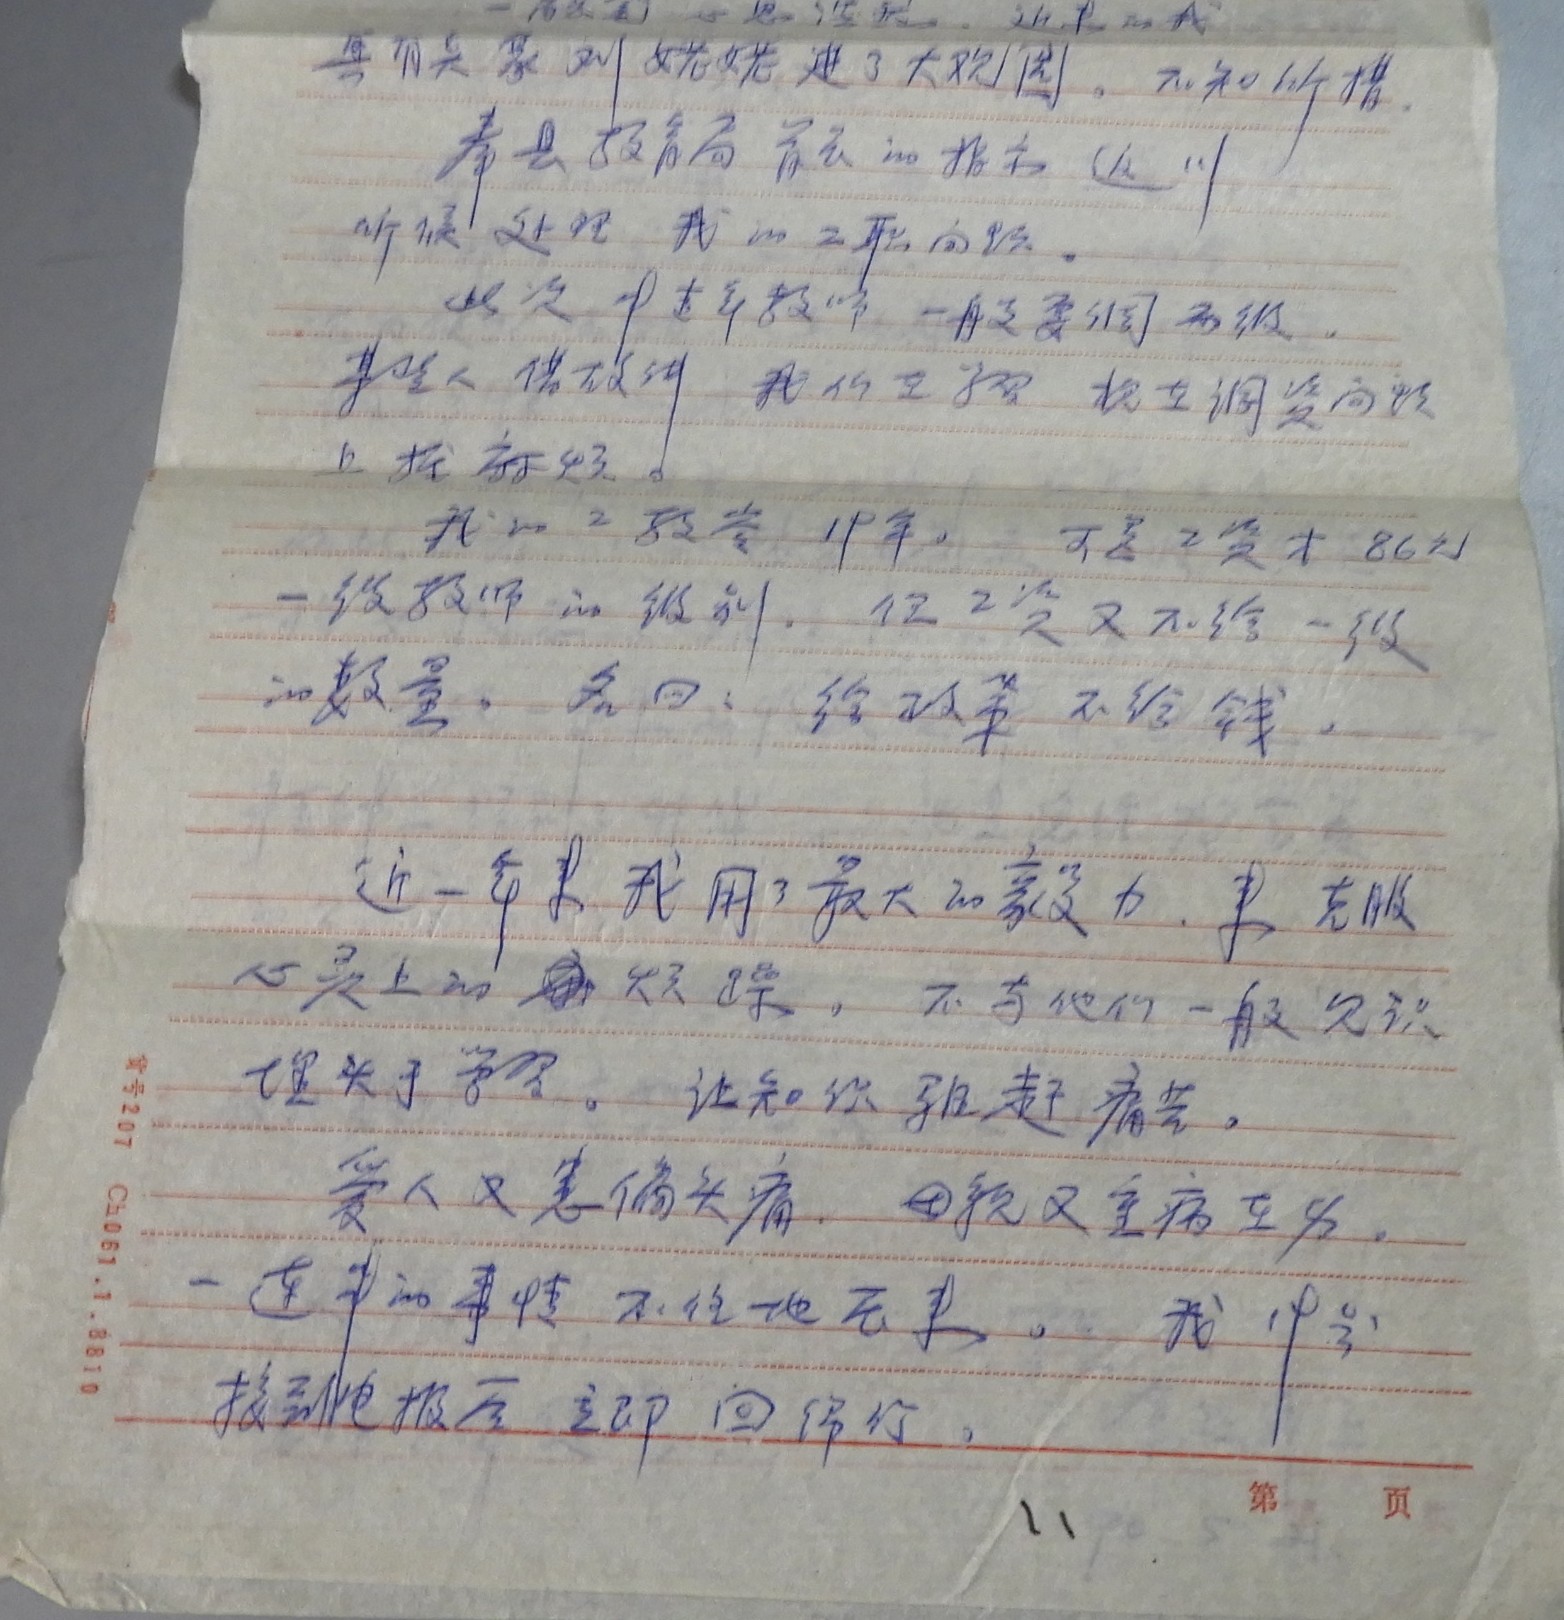 真有点象刘姥姥进了大观园。不知所措。
奉县教育局首长的指示返川
听候处理 我的工职问题。
此次中青年教师 一般要调两级。
某些人借故讲 我们在学习 想在调资问题
上找麻烦。
我的工教当19年。 可是工资才86分
一级教师的级别。但工资又不给一级
的数量。名曰:给改革不给钱。
近一年来我用了最大的毅力、来克服
心灵上的烦躁。不与他们一般见识
埋头于学习。让知识驱赶痛苦。
爱人又患偏头痛。母亲又重病在身。
一连串的事情不住地压来。 我19号
接到电报后立即回绵竹。
第 页
11
货号207 C5061.1.8810